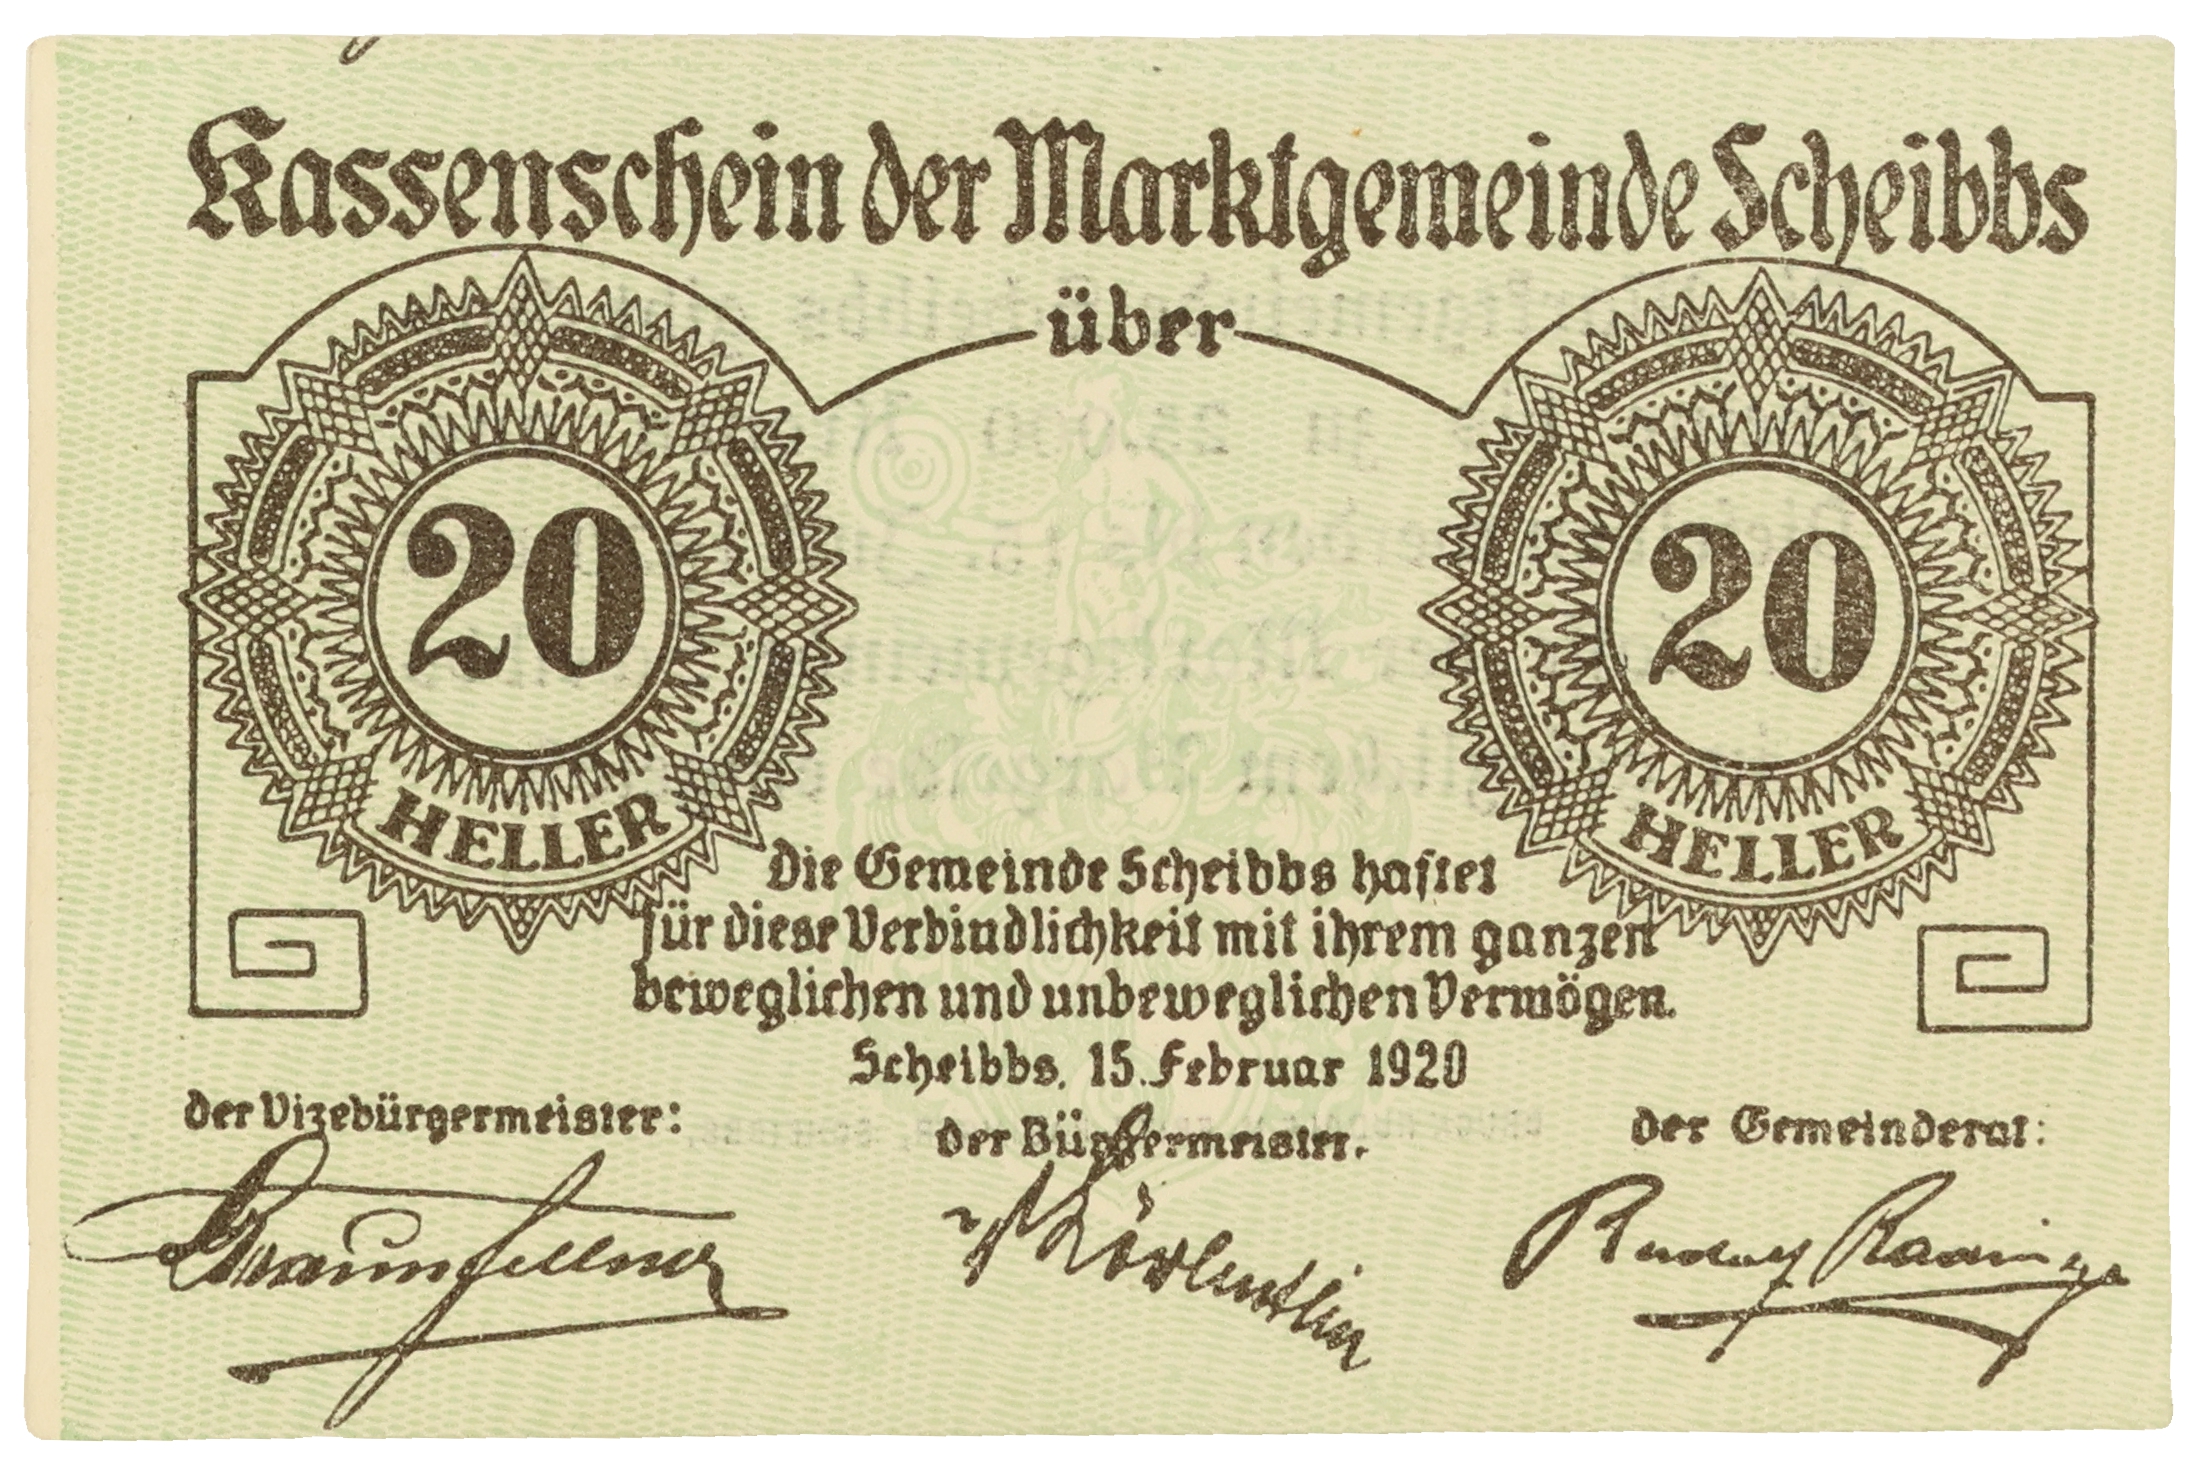 Kassenschein der Marktgemeinde Scheibbs
über
20 20
HELLER HELLER
Die Gemeinde Scheibbs haftet
für diese Verbindlichkeit mit ihrem ganzen
beweglichen und unbeweglichen Vermögen.
Scheibbs, 15. Februar 1920
der Vizebürgermeister: der Bürgermeister. der Gemeinderat:
Braunfellner Rudolf